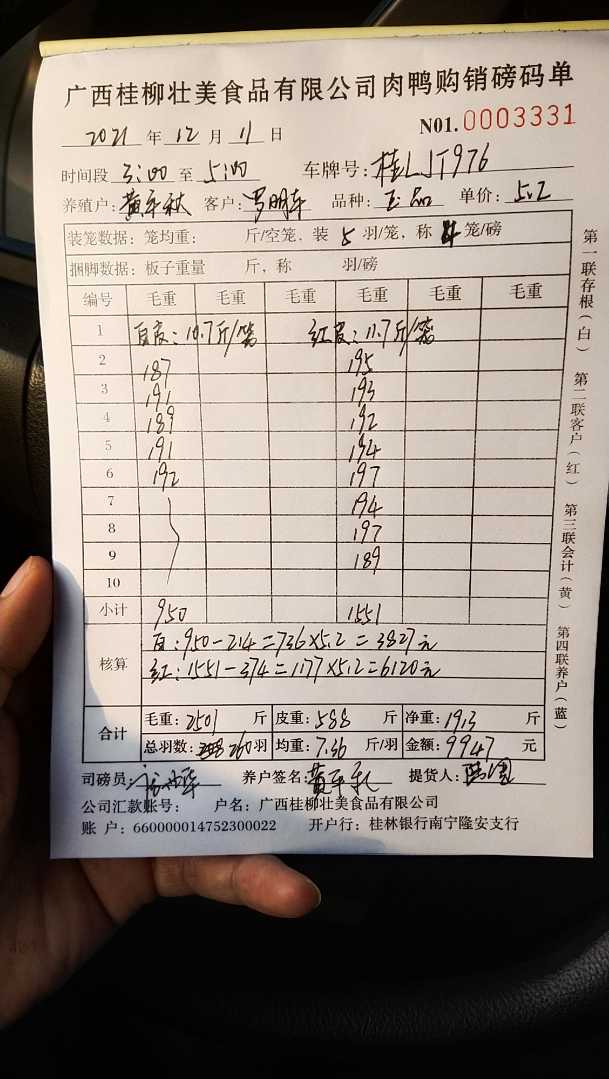 广西桂柳壮美食品有限公司肉鸭购销磅码单
2021 年 12 月 11 日 N01.0003331
时间段 3:00 至 5:00 车牌号: 桂LJT976
养殖户: 黄平秋 客户: 罗明车 品种: 正品 单价: 5.2
装笼数据: 笼均重: 斤/空笼, 装 5 羽/笼, 称 4 笼/磅
捆脚数据: 板子重量 斤, 称 羽/磅
编号 毛重 毛重 毛重 毛重 毛重 毛重
1 白皮: 10.7斤/笼 红皮: 11.7斤/笼
2 187 195
3 191 193
4 189 192
5 191 194
6 192 197
7 194
8 197
9 189
10
小计 950 1551
核算 白: 950-214=736×5.2=3827元
红: 1551-374=1177×5.2=6120元
合计 毛重: 2501 斤 皮重: 588 斤 净重: 1913 斤
总羽数: 260羽 均重: 7.36 斤/羽 金额: 9947 元
司磅员: 养户签名: 黄平秋 提货人:
公司汇款账号: 户名: 广西桂柳壮美食品有限公司
账 户: 660000014752300022 开户行: 桂林银行南宁隆安支行
第一联存根(白) 第二联客户(红) 第三联会计(黄) 第四联养户(蓝)